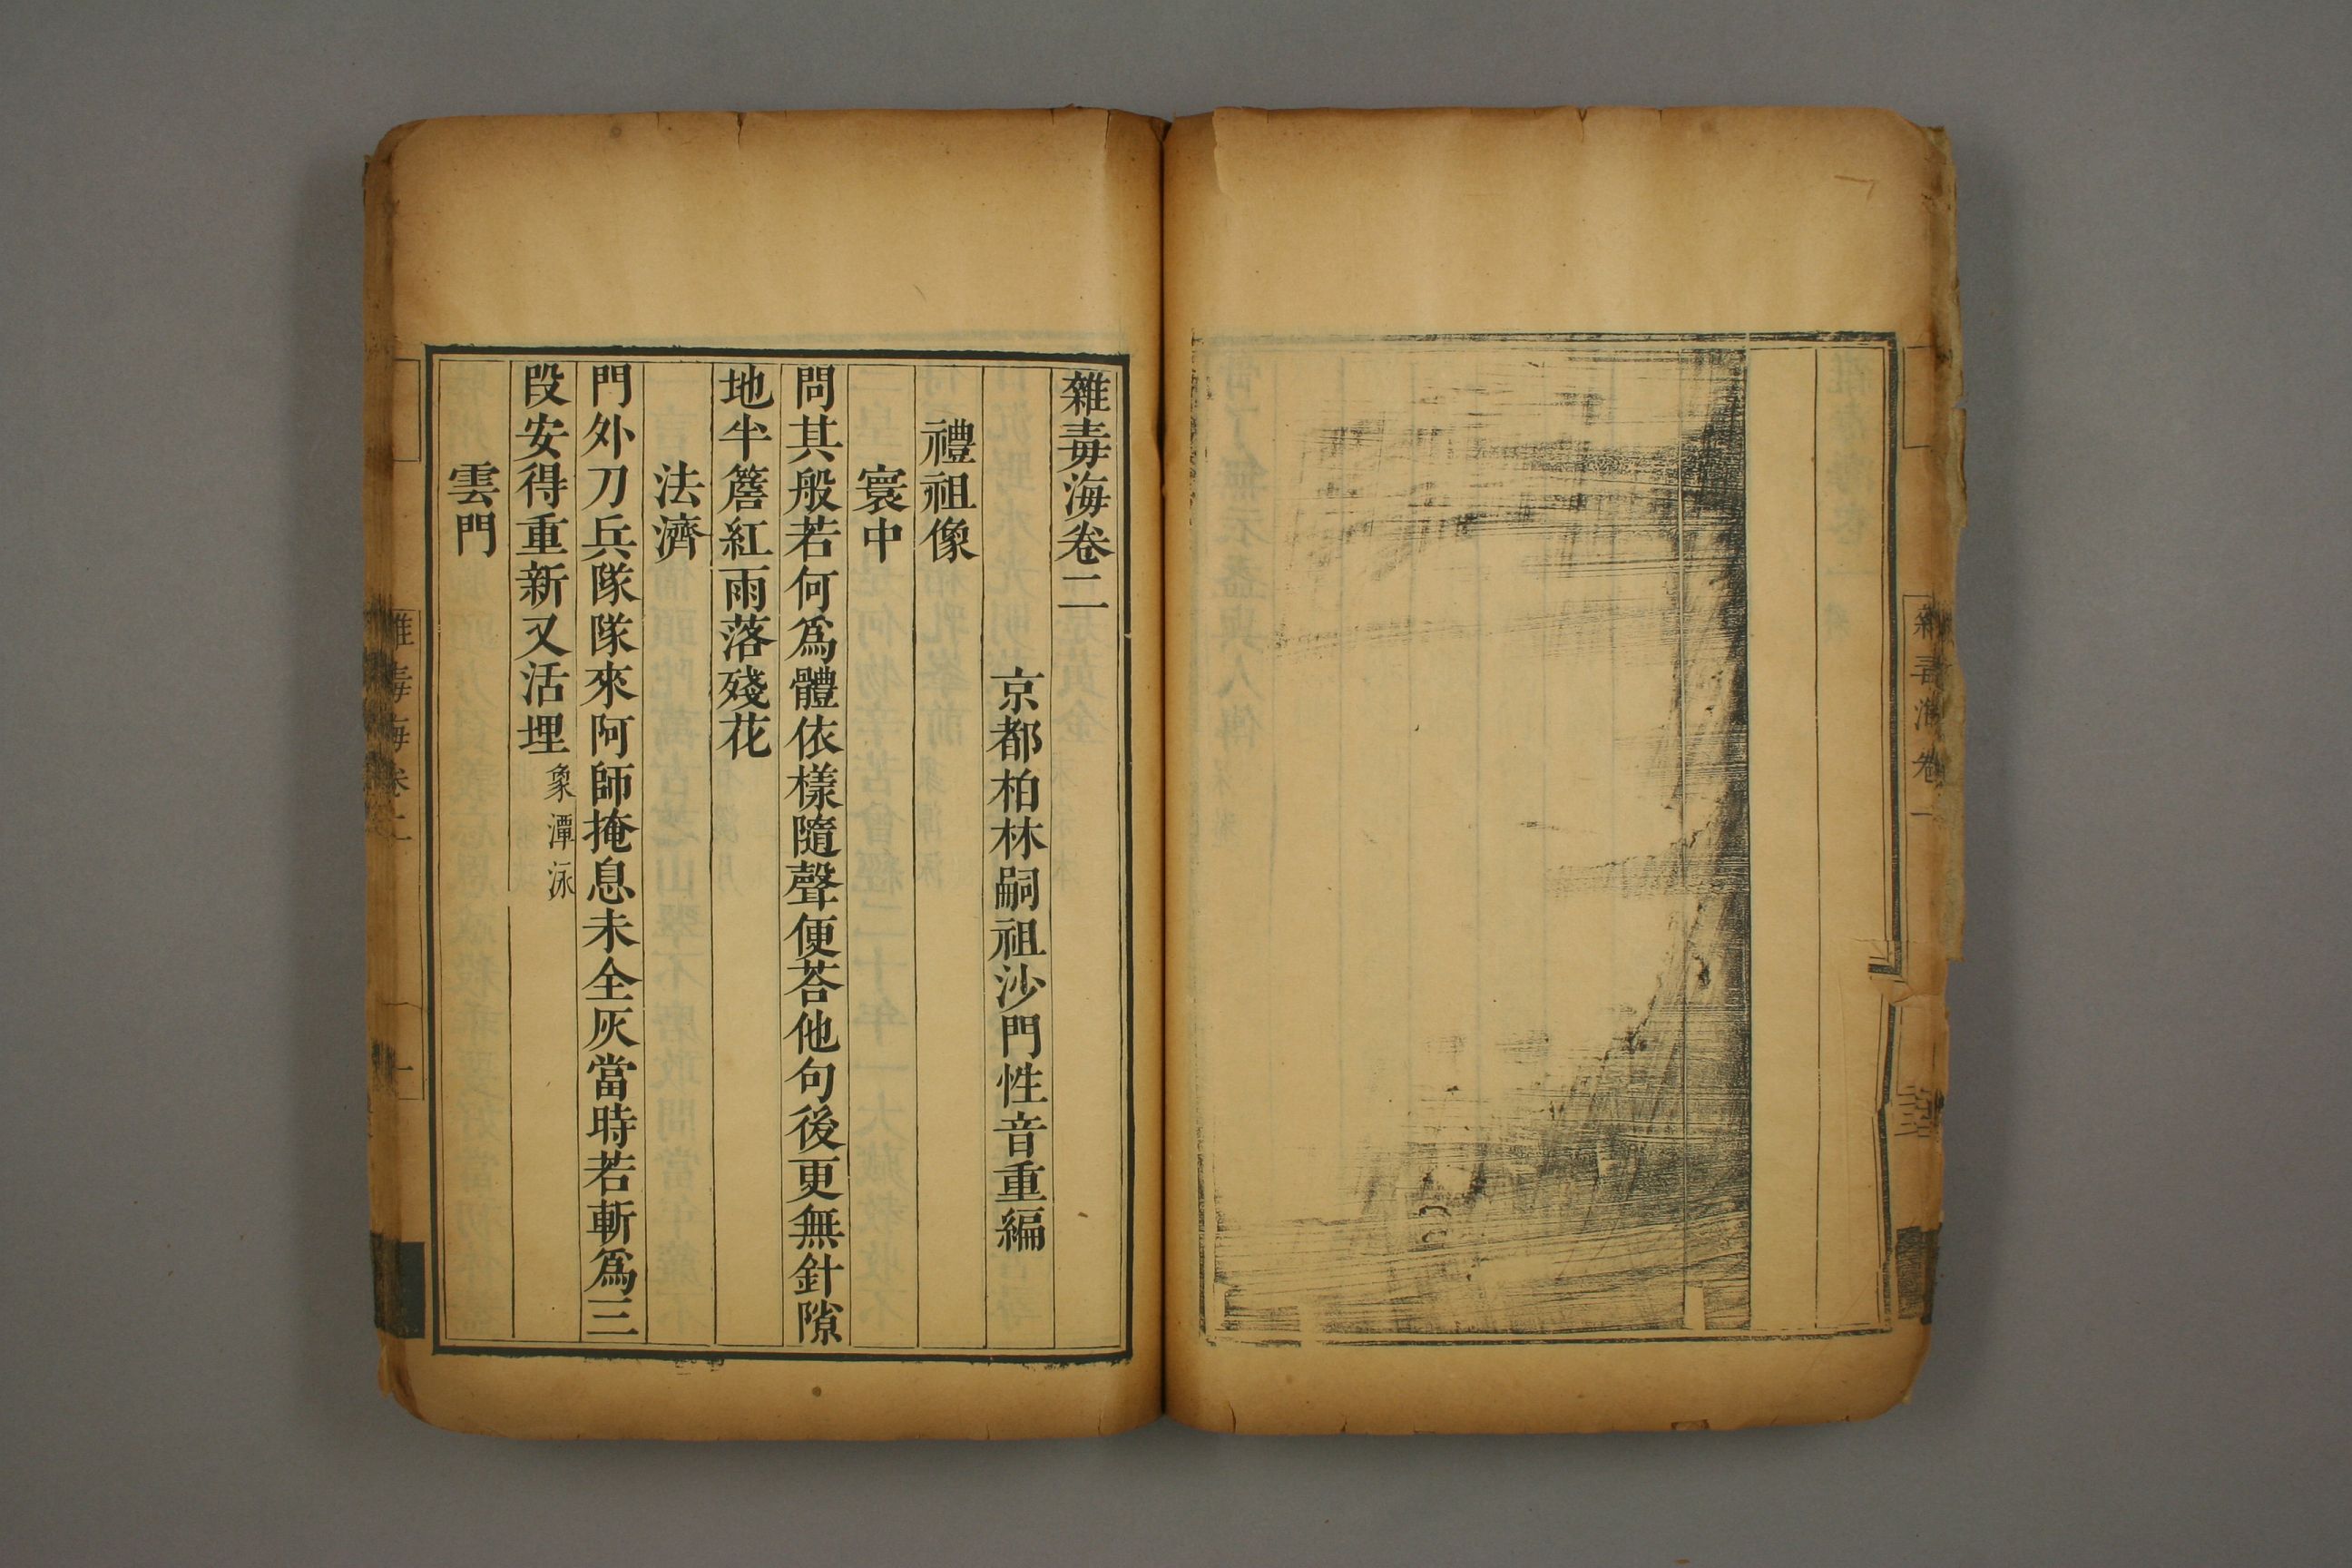 雜毒海卷一
雜毒海卷二
京都柏林嗣祖沙門性音重編
禮祖像
寰中
問其般若何爲體依樣隨聲便荅他句後更無針隙
地半簷紅雨落殘花
法濟
門外刀兵隊隊來阿師掩息未全灰當時若斬爲三
段安得重新又活埋 象潭泳
雲門
雜毒海卷二
一